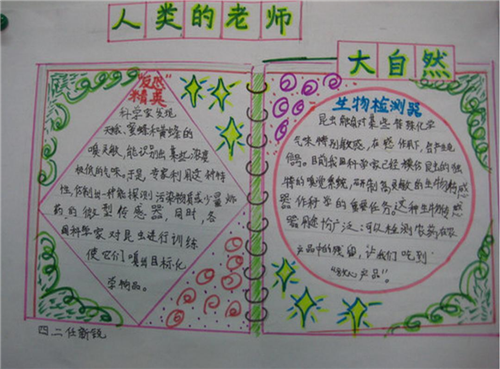 人类的老师
大自然
"反恐"
精英
科学家发现
天蛾、蜜蜂和黄蜂的
嗅觉灵敏,能识别出某些浓度
极低的气味,于是,专家利用这种特
性,仿制出一种能探测污染物或少量炸
药的微型传感器。同时,各
国科学家对昆虫进行训练
使它们嗅出目标化
学物品。
生物检测器
昆虫都会对某些特殊化学
气味特别敏感,在感
号。目前我国科学家已经模仿昆虫的独
特的嗅觉系统,研制高灵敏的生物传感
器作科学的重要任务。这种生物传感
器用途广泛:可以检测农药在农
产品中的残留,让我们吃到
"放心产品"。
四二任新锐